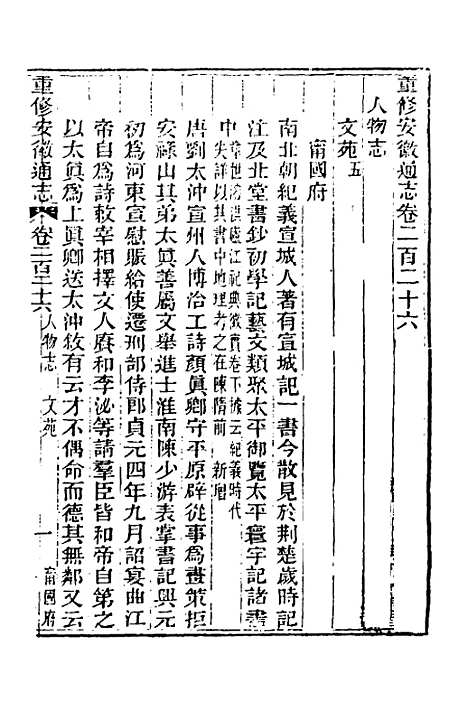 重修安徽通志卷二百二十六
人物志
文苑五
甯國府
南北朝紀義宣城人著有宣城記一書今散見於荆楚歲時記
注及北堂書鈔初學記藝文類聚太平御覽太平寰宇記諸書
中章世溶湛廬江祀典徵實卷下據云紀義時代
失詳以其書中地理考之在陳隋前 新增
唐劉太沖宣州人博洽工詩顏眞卿守平原辟從事爲畫策拒
安祿山其弟太眞善屬文舉進士淮南陳少游表掌書記興元
初爲河東宣慰賑給使遷刑部侍郎貞元四年九月詔宴曲江
帝自爲詩敕宰相擇文人賡和李泌等請羣臣皆和帝自第之
以太眞爲上眞卿送太沖敘有云才不偶命而德其無鄰又云
重修安徽通志 卷二百二十六 人物志 文苑 一 甯國府